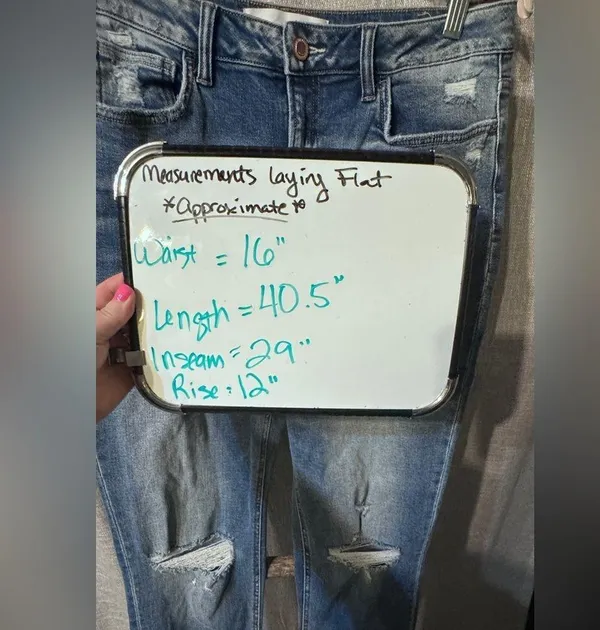 Measurements Laying Flat
*Approximate*
Waist = 16"
Length = 40.5"
Inseam = 29"
Rise = 12"